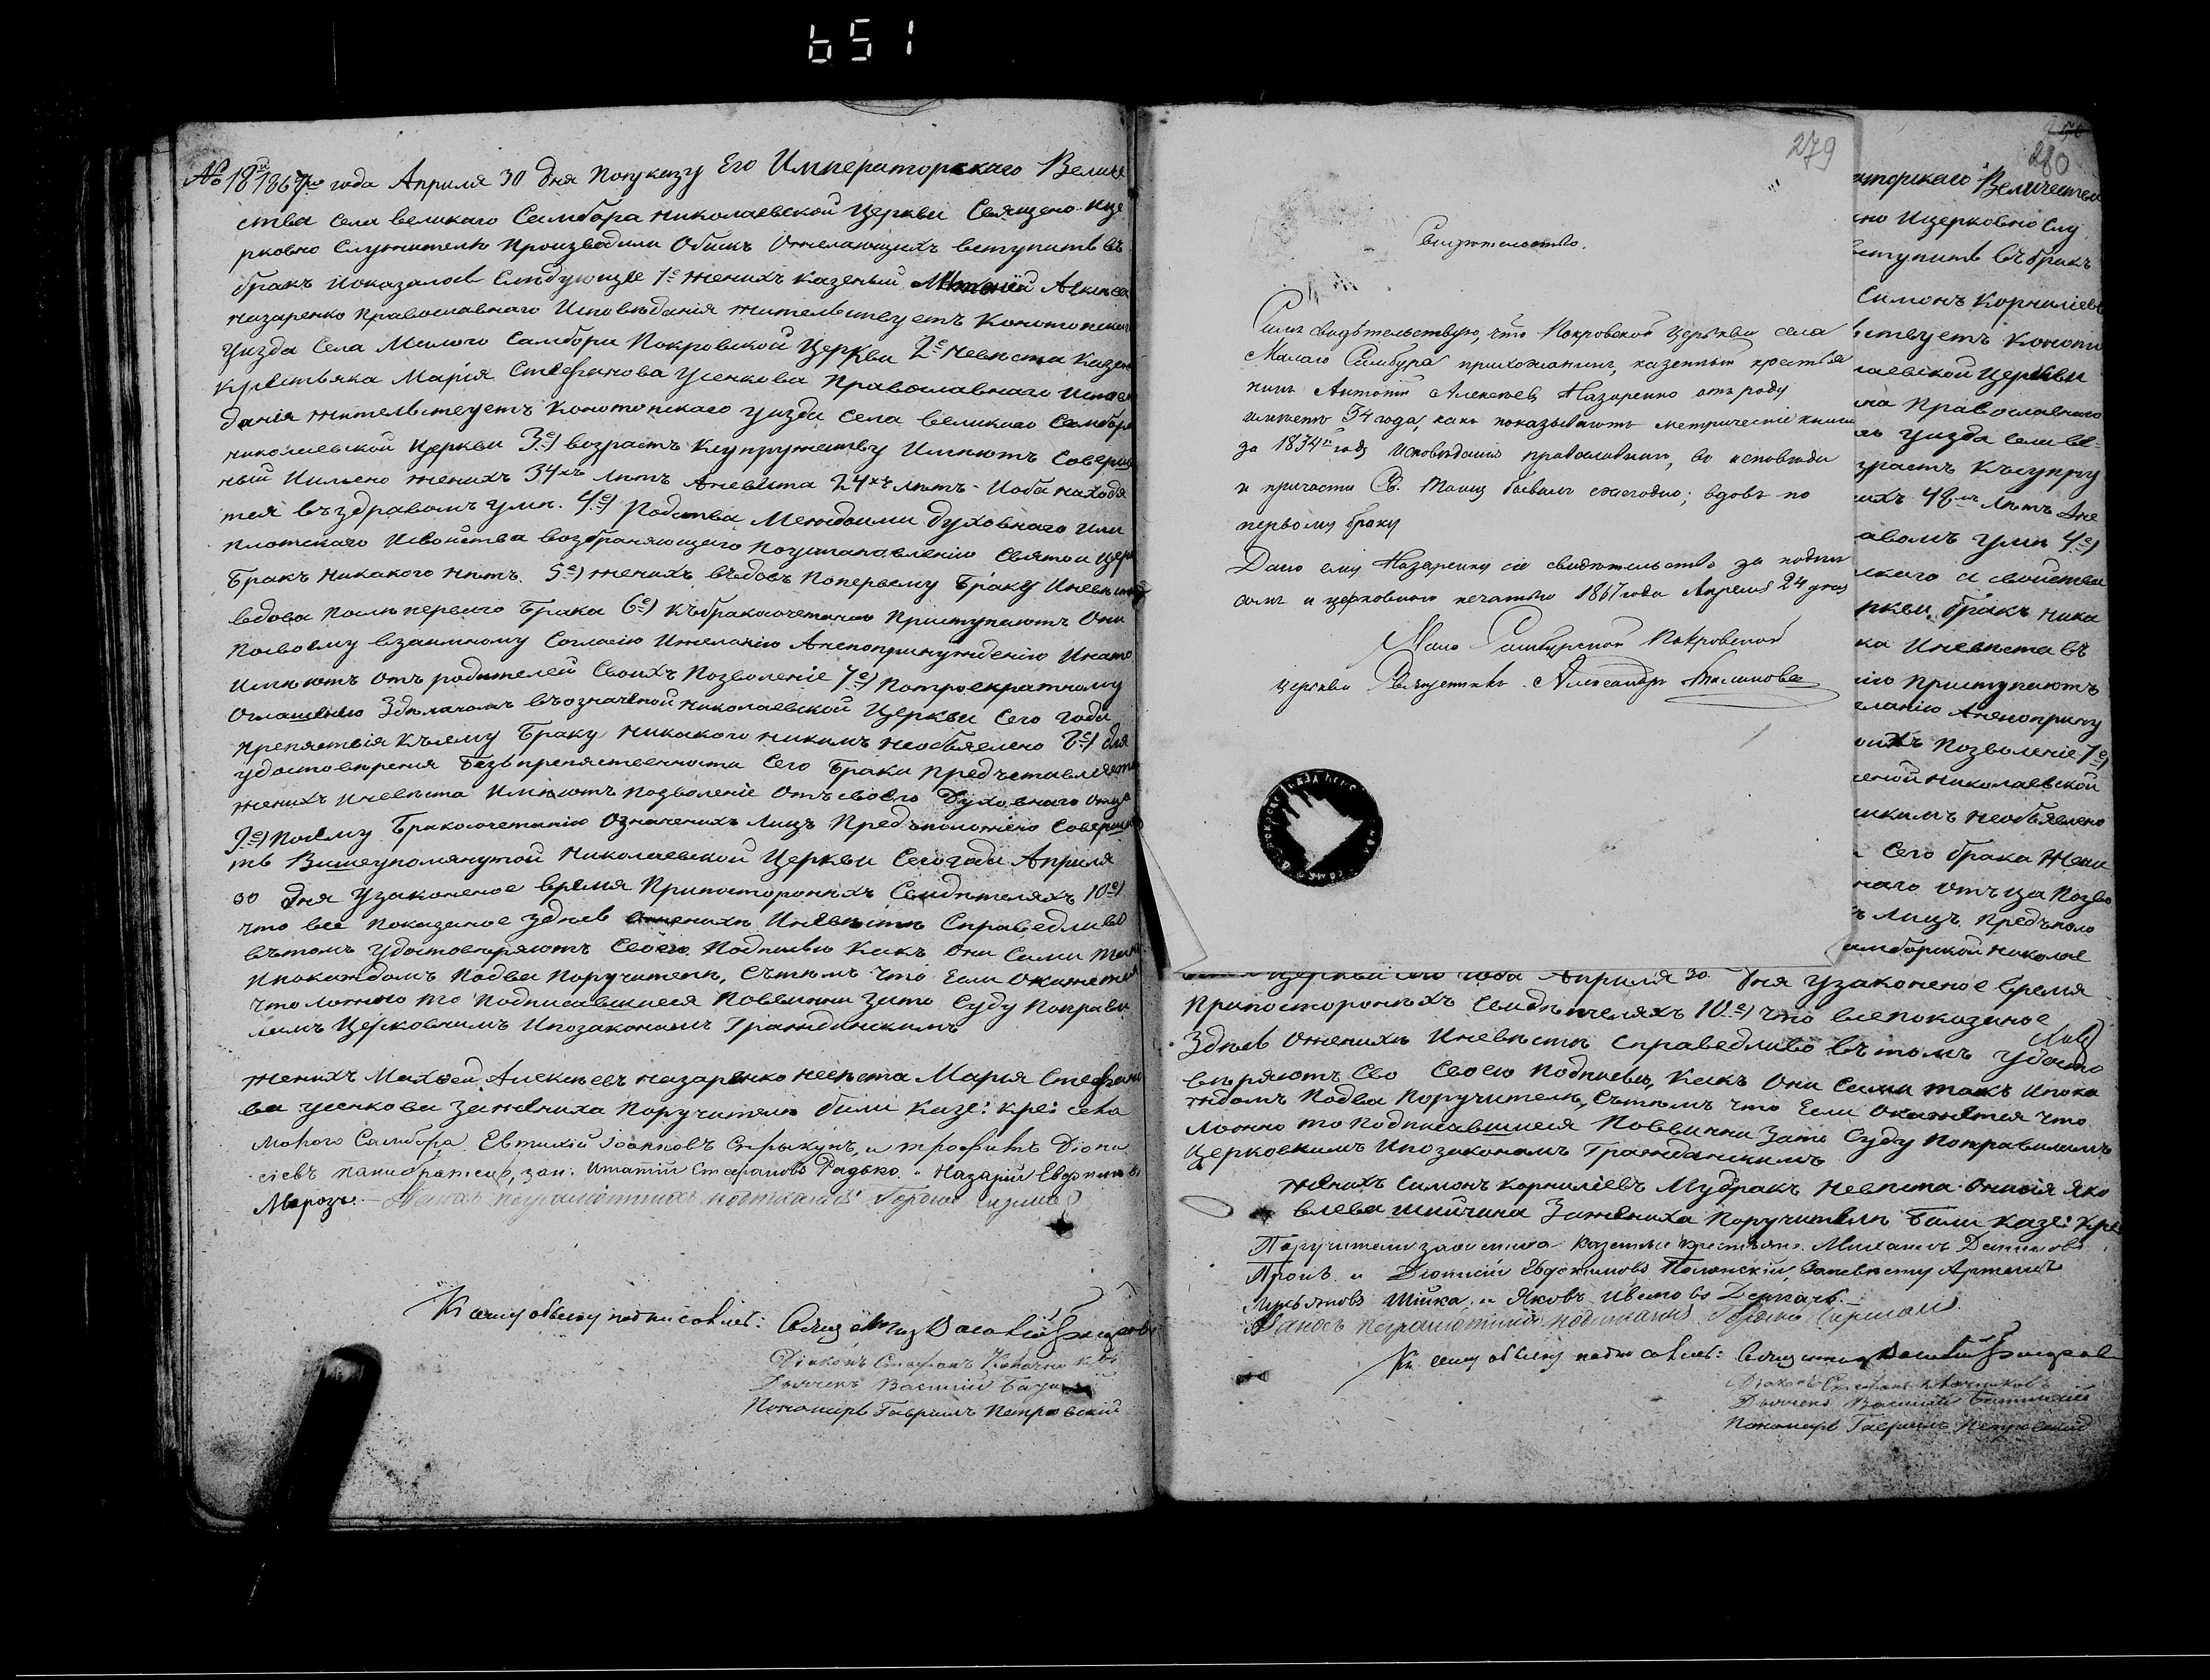 651
№ 18й 1867го года Апреля 30 дня Поуказу Его Императорскаго Величе
ства Села великаго Самбора николаевской Церкви Священо Ице
рковно Служители Производили Обыск Ожелающихъ вступить въ
бракъ Иоказалось Следующее 1е женихъ казеный Алексеев
назаренко православнаго Исповеданія жительствуетъ Конотопскаго
уизда Села Малого Самбора Покровской Церкви 2е Невеста Казен
Крестьянка Марія Стефанова Усенкова Православнаго Испове
данія жительствуетъ Конотопскаго уизда Села великаго Самбора
николаевской Церкви 3е) возрастъ Ксупружеству Имеютъ Соверше
ный Имено женихъ 34хъ летъ Аневеста 24хъ летъ Иоба находя
тся въздравомъ уме. 4е) Родства Междоими духовнаго Или
плотскаго Исвойства возбраняющаго Поустановлению Святои Церк
Бракъ Никакого нетъ. 5е) женихъ въдовъ Попервому Браку Иневеста
вдова После перваго Брака 6е) Къбракосочетанию Приступаютъ Они
Посвоему взаимному Согласию Ижеланию Анепопринуждению Инато
Имеютъ Отъ родителей Своихъ Позволеніе 7е) Потроекратному
Оглашению Зделаномъ въозначеной николаевской Церкви Сего Года
препятствія Късему Браку Никакого никимъ необъявлено 8е) для
удостоверения Безъпрепятственности Сего Брака предъставляютъ
женихъ Иневеста Имеютъ позволеніе Отъсвоего Духовнаго Отца
9е) Посему Бракосочетанию Означеныхъ Лицъ Предъположено Соверши
ть Вишеупомянутой Николаевской Церкви Сегогода Апреля
30 дня Узаконеное время Припосторонныхъ Свидетеляхъ 10е)
что все Показаное Здесь Ожених Иневесте Справедливо
вътомъ Удостоверяютъ Своею Подписью Какъ Они Сами Такъ
Ипокаждомъ Подва Поручителя, Сътемъ Что Если Окажется
что ложно то Подписавшиеся Повинни Зато Суду Поправи
ламъ Церковнимъ Ипозаконамъ Гражданскимъ
женихъ Алексеевъ назаренко невеста Марья Стефано
ва усенкова Зажениха Поручители били Казе: кре: села
Малого Самбора Евтихій Іоанновъ Стрыкунъ, и трофимъ Діони
сіевъ, зан: Игнатій Стефановъ Радько и Назарій Евфимовъ
Морозъ.
К сему обыску подписались: Священник Василій
Діаконъ Стефанъ
Дьячекъ Василій
Пономарь Гавріилъ Петровский
279
Свидетельство.
Симъ свидетельствую, что Покровской Церкви села
Малаго Самбура прихожанинъ, казенный крестья
нинъ Антоній Алексеевъ Назаренко отъ роду
имеетъ 34 года, какъ показываютъ метрическіе книги
за 1834й годъ исповеданія православнаго, во исповеди
и причастіи Св. Таинъ бываетъ ежегодно; вдовъ по
первому браку
Дано ему Назаренку сіе свидетельство за подпи
сомъ и церковною печатью 1867 года Апреля 24 дня
Мало Самбурской Покровской
церкви Священникъ Александръ
280
аторскаго Величества
но Ицерковно Слу
вступить въбракъ
Симонъ Корниліевъ
ьствуетъ Коното
лаевской Церкви
на Православнаго
уизда села ве-
зрастъ Късупру
ихъ 48мъ летъ Ане
авомъ уме 4е)
скаго и свойства
ркви, бракъ Ника
ка Иневеста въ
ію Приступаютъ
ланію Анепоприну
оихъ Позволеніе 7е)
еной Николаевской
икимъ необъявлено
Сего брака Жени
наго отъца Позво
ъ Лицъ Предъполо
амборской николае
Церкви сего года Апреля 30 дня Узаконеное время
Припосторонныхъ Свидетеляхъ 10е) что всепоказаное
Здесь Ожених Иневесте Справедливо вътомъ Удосто
веряютъ Сво Своею Подписью, Какъ Они Сами такъ Ипока
ждомъ Подва Поручителя, Сътемъ что Если Окажется что
ложно то Подписавшиеся Повинни Зато Суду Поправиламъ
Церковнимъ Ипозаконамъ Гражданскимъ
женихъ Симонъ Корниліевъ Мудракъ невеста Яко
влева Зажениха Поручители Били казе: кре
Поручители казенные крестьяне Михаилъ Даниловъ
и Діонисій Евдокимовъ Полонскій, Заневесту Артемъ
Шійка, и Яковъ Ивановъ Деркачъ.
К сему обыску подписались: Священник Василій
Діаконъ Стефанъ
Дьячекъ Василій
Пономарь Гавріилъ Петровский